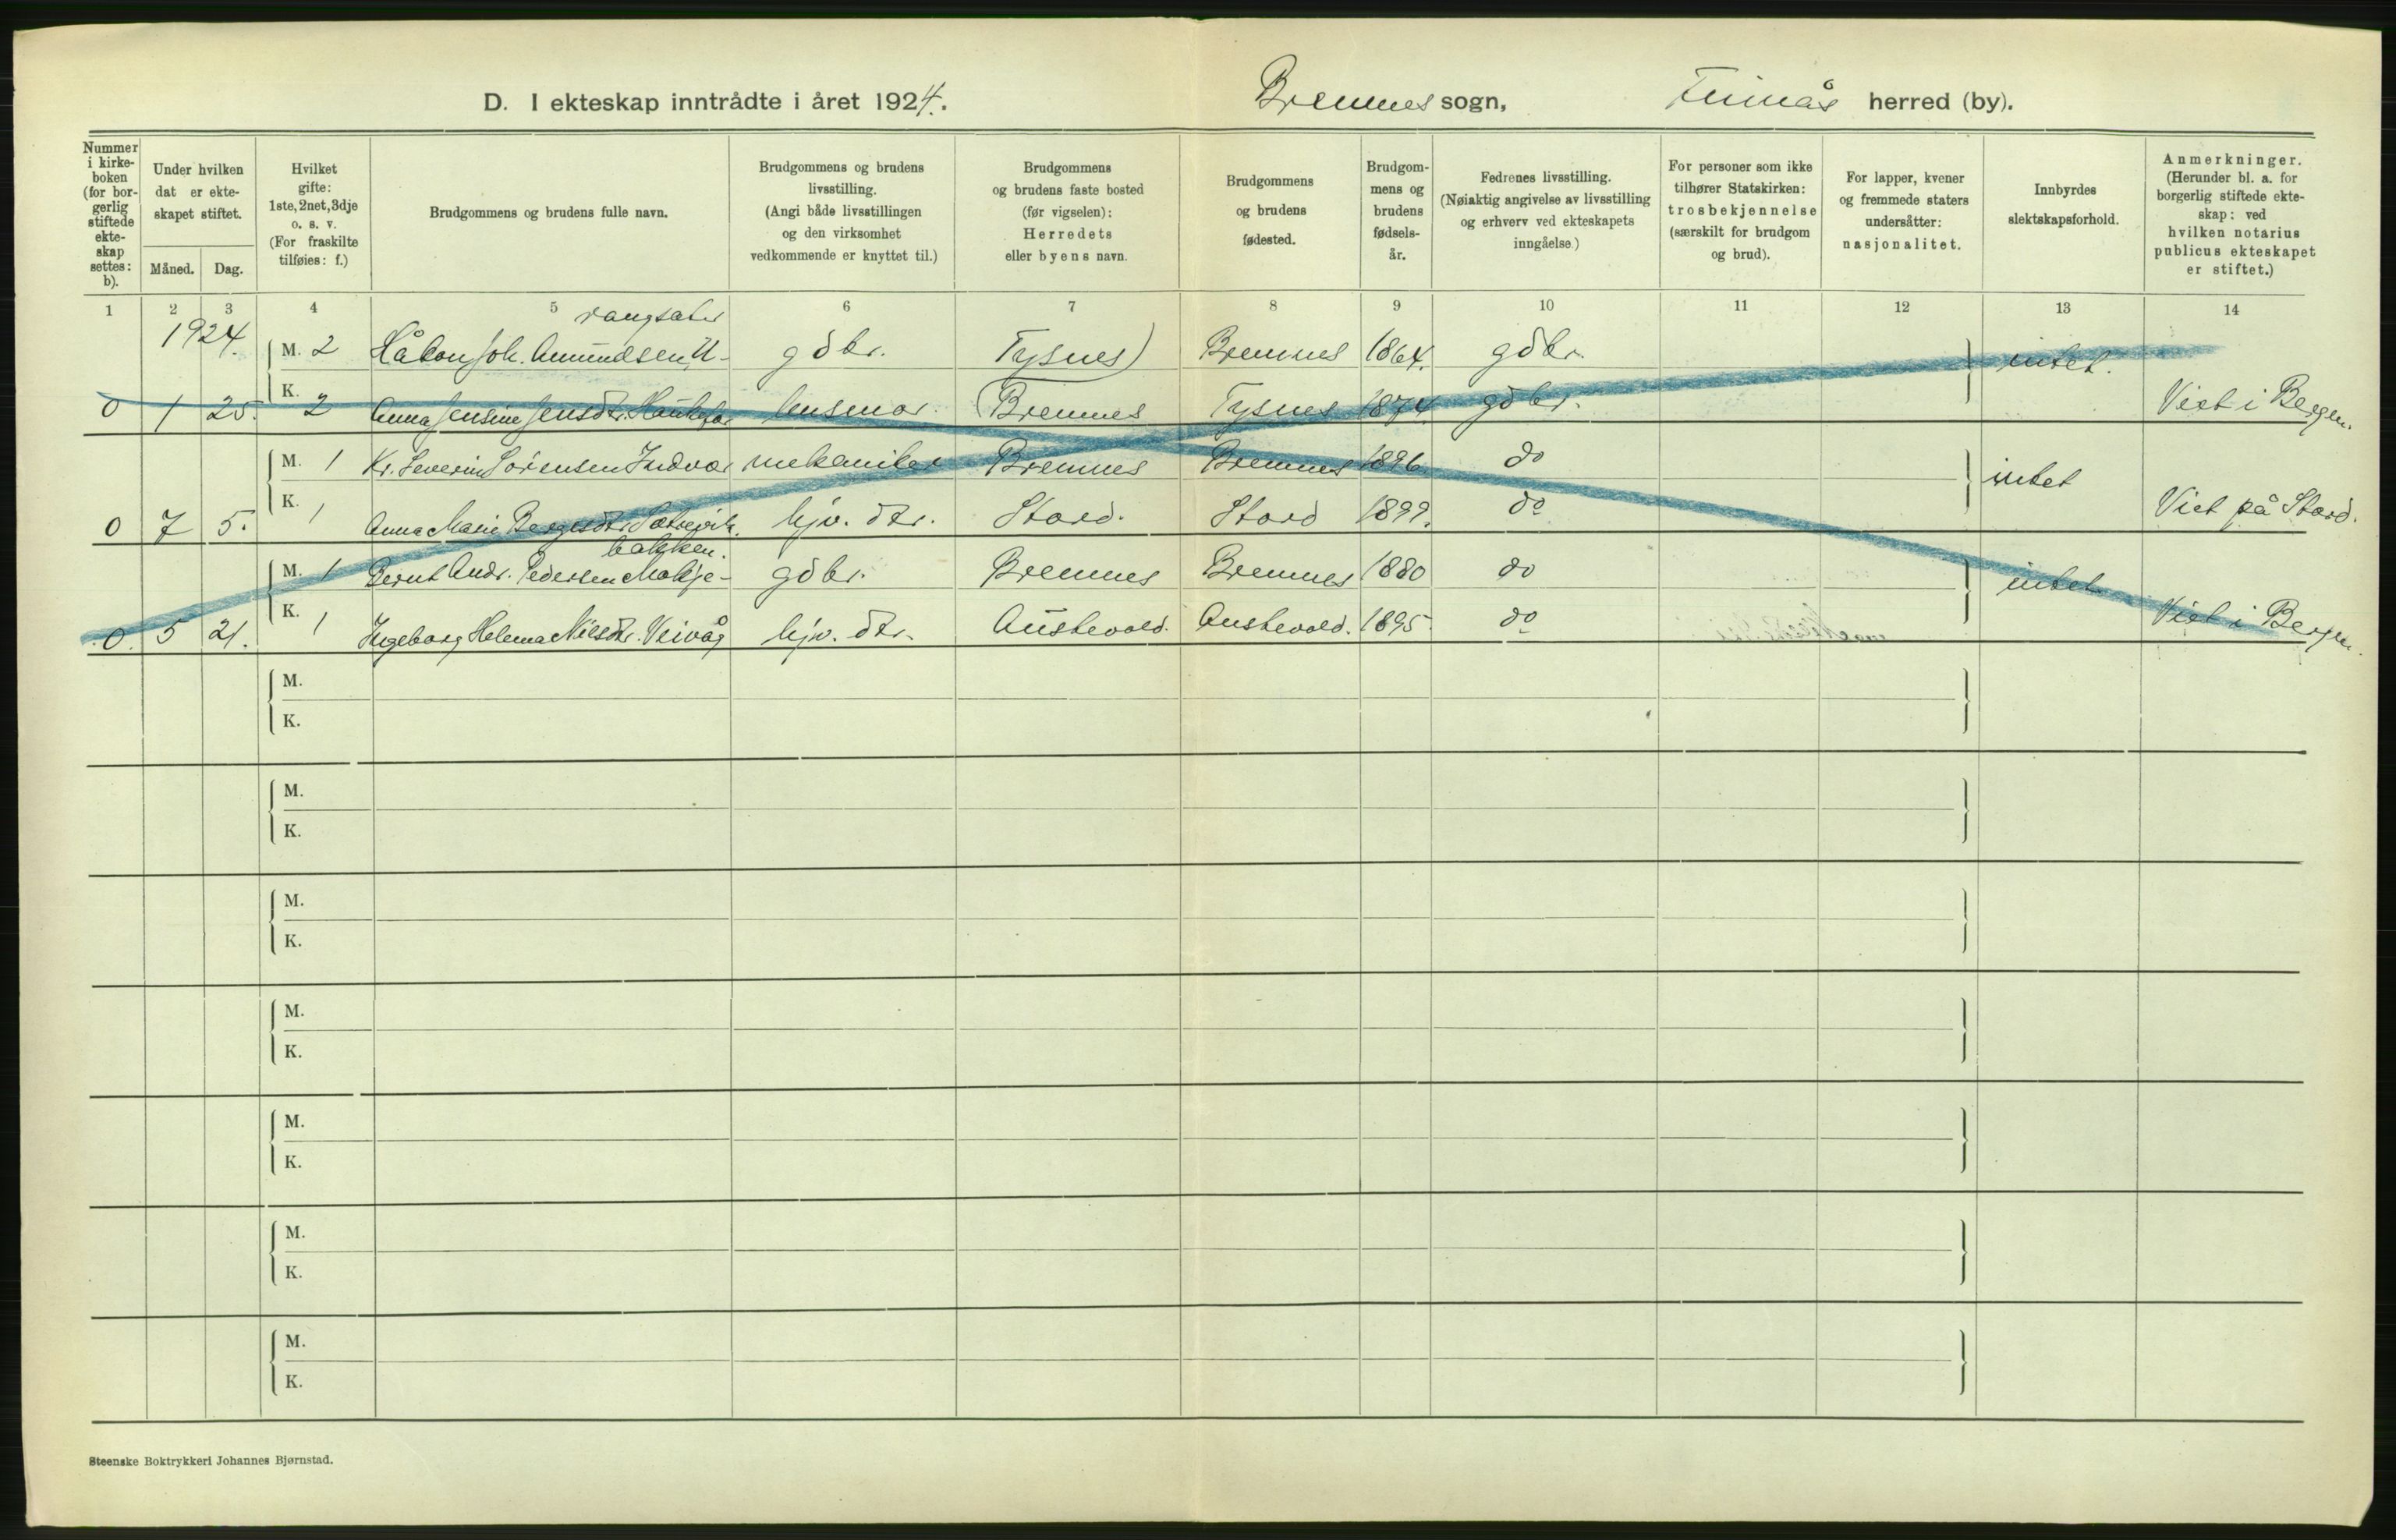 D. I ekteskap inntrådte i året 1924. Bremnes sogn, Finnås herred (by).
Nummer i kirkeboken (for borgerlig stiftede ekteskap settes: b).
Under hvilken dat er ekteskapet stiftet.
Måned. Dag.
Hvilket gifte: 1ste, 2net, 3dje o. s. v. (For fraskilte tilføies: f.)
Brudgommens og brudens fulle navn.
Brudgommens og brudens livsstilling. (Angi både livsstillingen og den virksomhet vedkommende er knyttet til.)
Brudgommens og brudens faste bosted (før vigselen): Herredets eller byens navn.
Brudgommens og brudens fødested.
Brudgommens og brudens fødselsår.
Fedrenes livsstilling. (Nøiaktig angivelse av livsstilling og erhverv ved ekteskapets inngåelse)
For personer som ikke tilhører Statskirken: trosbekjennelse (særskilt for brudgom og brud).
For lapper, kvener og fremmede staters undersåtter: nasjonalitet.
Innbyrdes slektskapsforhold.
Anmerkninger. (Herunder bl. a. for borgerlig stiftede ekteskap: ved hvilken notarius publicus ekteskapet er stiftet.)
1 2 3 4 5 6 7 8 9 10 11 12 13 14
1924.
rangsater
M. 2 Håkon Joh. Amundsen, U- gdbr. Tysnes) Bremnes 1864. gdbr. intet.
0 1 25. K. 2 Anna Jensine Jensdtr. husmor. (Bremnes Tysnes 1874 gdbr. Viet i Bergen.
M. 1 Kr. Severin Sørensen Indvær mekaniker Bremnes Bremnes 1896 do intet
0 7 5. K. 1 Anna Marie Sætrevik. hjv. dtr. Stord. Stord 1899. do Viet på Stord.
bakken.
M. 1 Bernt Andr. Pedersen Mølje- gdbr. Bremnes Bremnes 1880 do intet
0. 5 21. K. 1 Ingeborg Helena Nilsdtr. Veivåg hjv. dtr. Austevold. Austevold. 1895 do Viet i Bergen.
M.
K.
M.
K.
M.
K.
M.
K.
M.
K.
M.
K.
M.
K.
Steenske Boktrykkeri Johannes Bjørnstad.